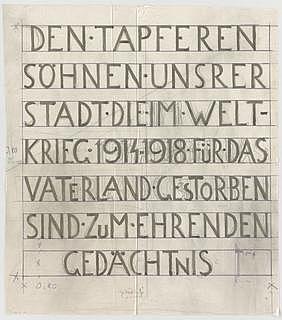 DEN·TAPFEREN
SÖHNEN·UNSRER
STADT·DIE·IM·WELT-
KRIEG·1914-1918·FÜR·DAS
VATERLAND·GESTORBEN
SIND·ZUM·EHRENDEN
GEDÄCHTNIS